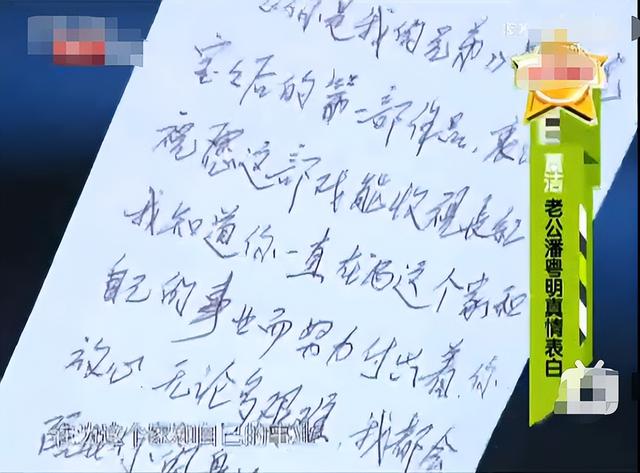 你是我的兄弟》
宝之后的第一部作品,衷
祝愿这部戏能收视长红
我知道你一直在为这个家和
自己的事业而努力付出着,你
放心 无论多艰难,我都会
在为这个家和自己的事业
老公潘粤明真情表白